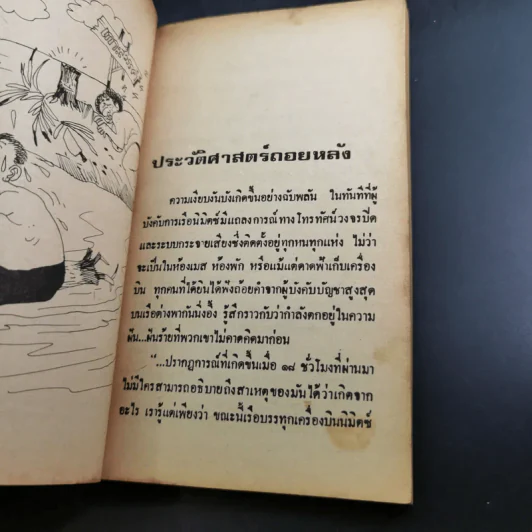 ประวัติศาสตร์ถอยหลัง
ความเงียบงันบังเกิดขึ้นอย่างฉับพลัน ในทันทีที่ผู้
บังคับการเรือนิมิตซ์มีแถลงการณ์ทางโทรทัศน์วงจรปิด
และระบบกระจายเสียงซึ่งติดตั้งอยู่ทุกหนทุกแห่ง ไม่ว่า
จะเป็นในห้องเมส ห้องพัก หรือแม้แต่ดาดฟ้าเก็บเครื่อง
บิน ทุกคนที่ได้ยินได้ฟังถ้อยคำจากผู้บังคับบัญชาสูงสุด
บนเรือต่างพากันนิ่งอึ้ง รู้สึกราวกับว่ากำลังตกอยู่ในความ
ฝัน...ฝันร้ายที่พวกเขาไม่คาดคิดมาก่อน
“...ปรากฏการณ์ที่เกิดขึ้นเมื่อ ๑๘ ชั่วโมงที่ผ่านมา
ไม่มีใครสามารถอธิบายถึงสาเหตุของมันได้ว่าเกิดจาก
อะไร เรารู้แต่เพียงว่า ขณะนี้เรือบรรทุกเครื่องบินนิมิตซ์